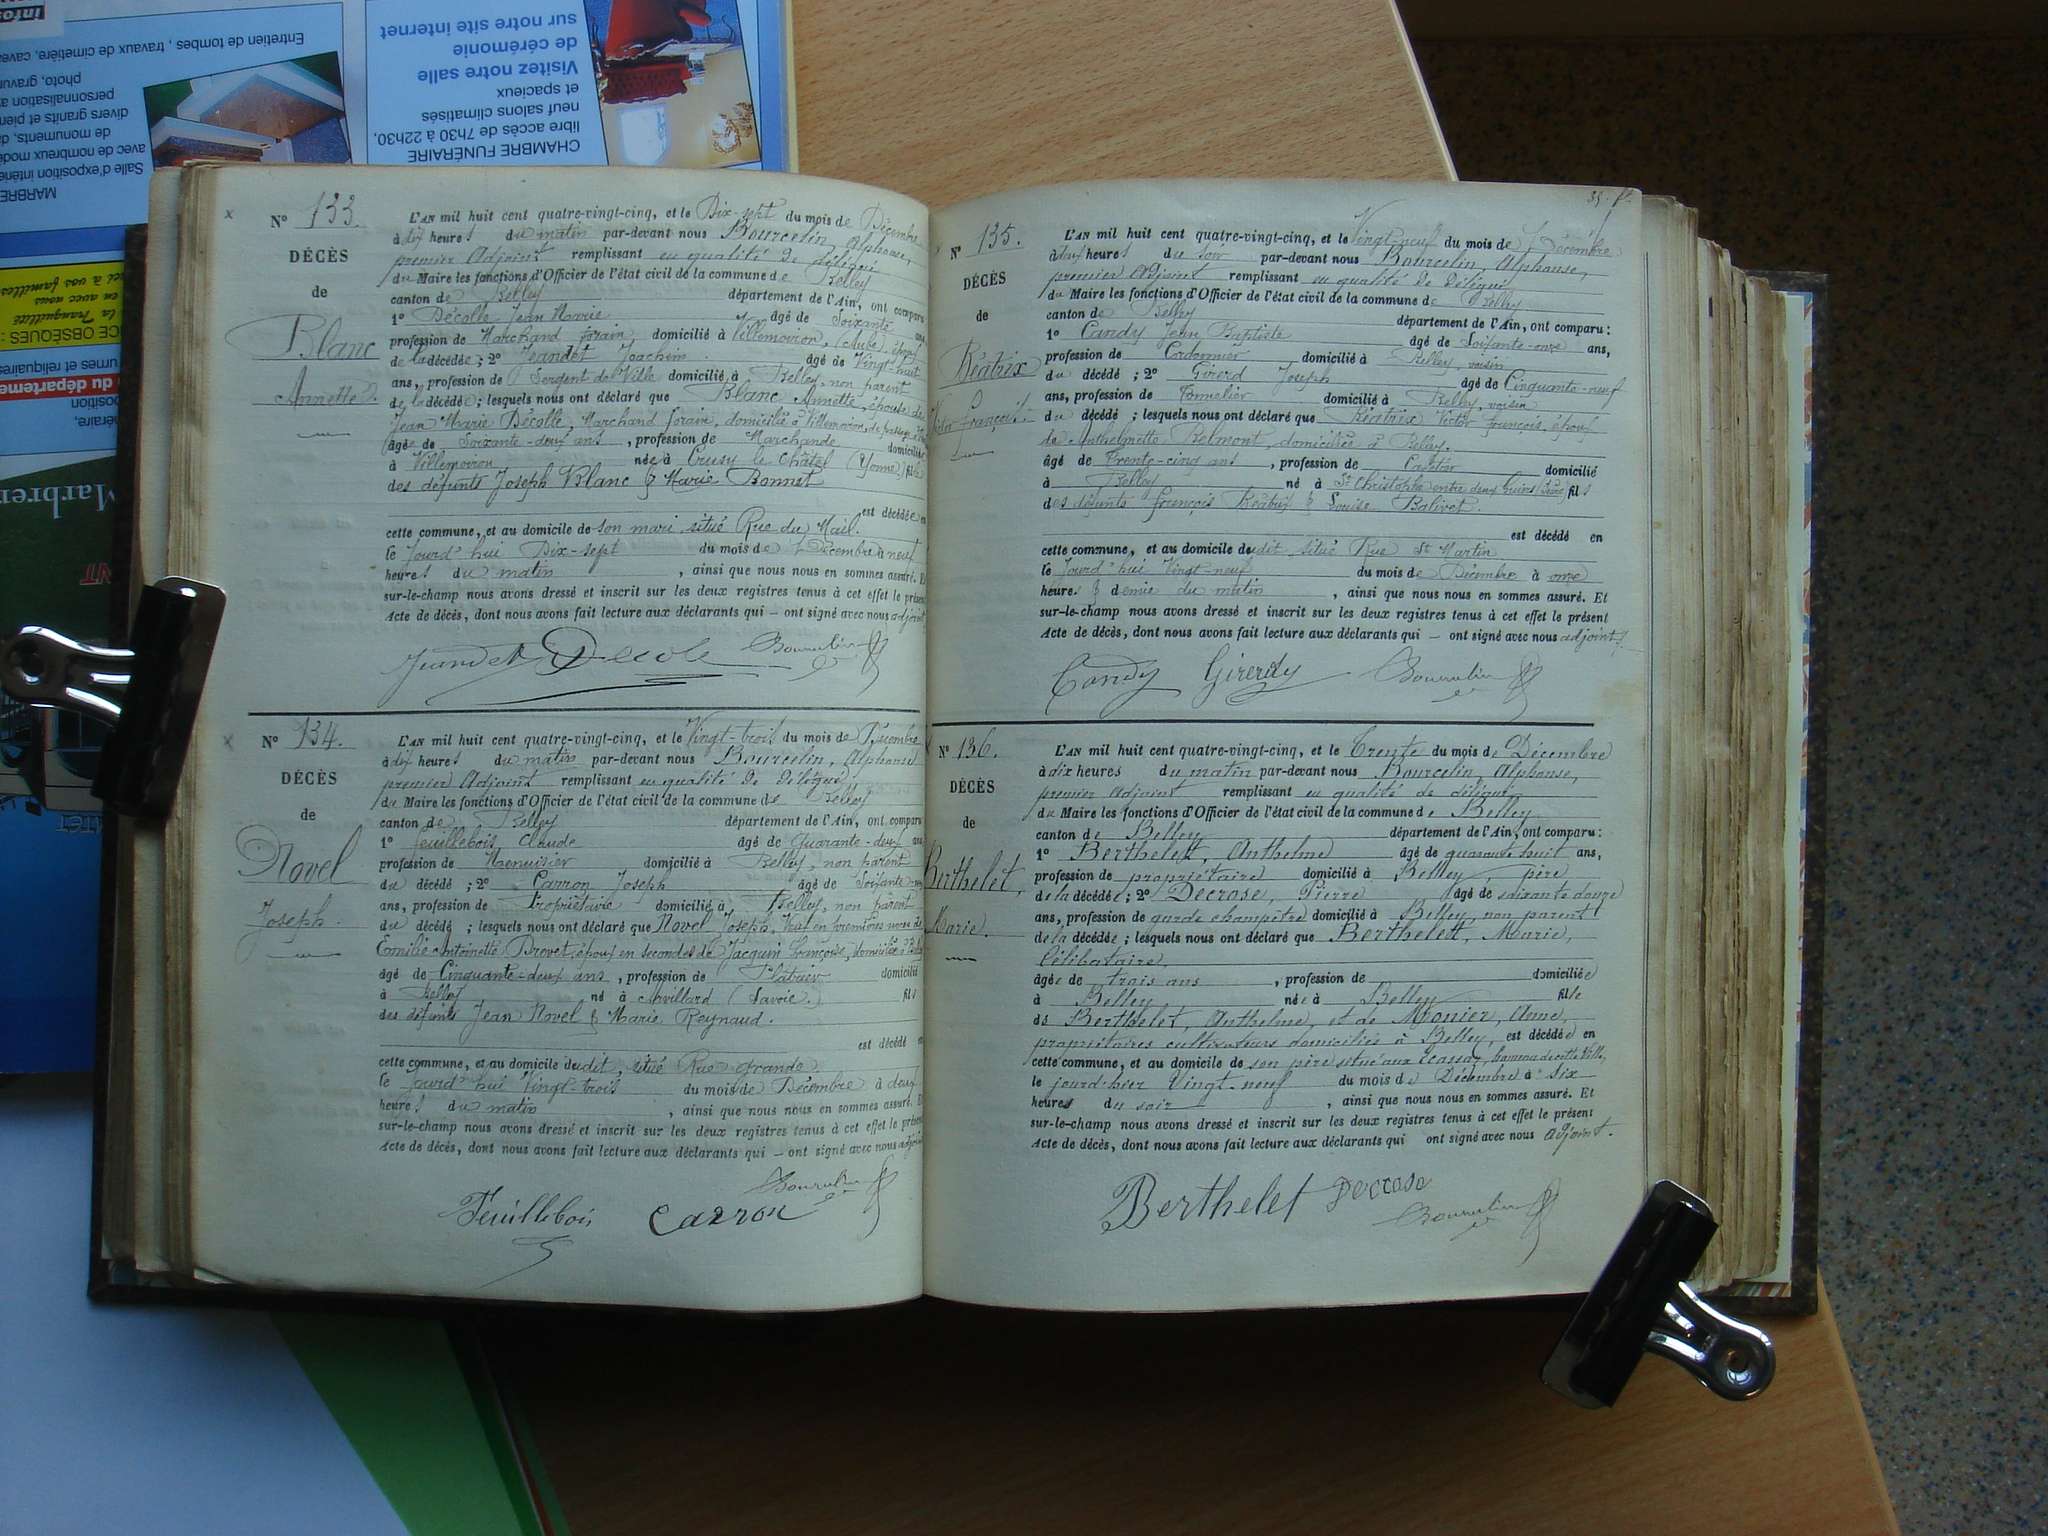 N° 133.
DÉCÈS
de
Blanc
Annette.
L'AN mil huit cent quatre-vingt-cinq, et le Dix-sept du mois de Décembre
à dix heures du matin par-devant nous Bourcelin, Alphonse,
premier Adjoint remplissant en qualité de délégué
du Maire les fonctions d'Officier de l'état civil de la commune de Belley
canton de Belley département de l'Ain, ont comparu
1° Décolle Jean Marie âgé de Soixante ans,
profession de Marchand forain, domicilié à Villemoiron, (Aube) époux
de la décédée ; 2° Jeandet Joachim âgé de Vingt-huit
ans, profession de Sergent de Ville domicilié à Belley, non parent
de la décédée ; lesquels nous ont déclaré que Blanc Annette, épouse de
Jean Marie Décolle, Marchand forain, domicilié à Villemoiron, de passage
âgée de Soixante-deux ans, profession de Marchande domiciliée
à Villemoiron née à Crusy le Châtel (Yonne) fille
des défunts Joseph Blanc & Marie Bonnet
est décédée en
cette commune, et au domicile de son mari, situé Rue du Mail.
le Jourd'hui Dix-sept du mois de Décembre à neuf
heures du matin, ainsi que nous nous en sommes assuré. Et
sur-le-champ nous avons dressé et inscrit sur les deux registres tenus à cet effet le présent
Acte de décès, dont nous avons fait lecture aux déclarants qui — ont signé avec nous adjoint.
Jeandet Decole Bourcelin
N° 134.
DÉCÈS
de
Novel
Joseph.
L'AN mil huit cent quatre-vingt-cinq, et le Vingt-trois du mois de Décembre
à dix heures du matin par-devant nous Bourcelin, Alphonse
premier Adjoint remplissant en qualité de délégué
du Maire les fonctions d'Officier de l'état civil de la commune de Belley
canton de Belley département de l'Ain, ont comparu
1° Feuillebois Claude âgé de Quarante-deux ans
profession de Menuisier domicilié à Belley, non parent
du décédé ; 2° Carron Joseph âgé de Soixante
ans, profession de Propriétaire domicilié à Belley, non parent
du décédé ; lesquels nous ont déclaré que Novel Joseph, Veuf en premières noces de
Emilie Antoinette Brovet, époux en secondes de Jacquin Françoise, domicilié à Belley
âgé de Cinquante-deux ans, profession de Plâtrier domicilié
à Belley né à Arvillard (Savoie.) fils
des défunts Jean Novel & Marie Reynaud.
est décédé en
cette commune, et au domicile dudit, situé Rue grande
le Jourd'hui Vingt-trois du mois de Décembre à deux
heures du matin, ainsi que nous nous en sommes assuré. Et
sur-le-champ nous avons dressé et inscrit sur les deux registres tenus à cet effet le présent
Acte de décès, dont nous avons fait lecture aux déclarants qui — ont signé avec nous adjoint
Feuillebois Carron Bourcelin
N° 135.
DÉCÈS
de
Réatrix
Victor François.
L'AN mil huit cent quatre-vingt-cinq, et le Vingt-neuf du mois de Décembre
à deux heures du soir par-devant nous Bourcelin, Alphonse,
premier Adjoint remplissant en qualité de délégué
du Maire les fonctions d'Officier de l'état civil de la commune de Belley
canton de Belley département de l'Ain, ont comparu :
1° Candy Jean Baptiste âgé de Soixante-onze ans,
profession de Cordonnier domicilié à Belley, voisin
du décédé ; 2° Girerd Joseph âgé de Cinquante-neuf
ans, profession de Tonnelier domicilié à Belley, voisin
du décédé ; lesquels nous ont déclaré que Réatrix Victor François, époux
de Anthelmette Belmont, domiciliés à Belley.
âgé de Trente-cinq ans, profession de domicilié
à Belley né à St Christophe entre deux Guiers (Isère) fils
des défunts François Réatrix & Louise Balivet.
est décédé en
cette commune, et au domicile dudit, situé Rue St Martin
le Jourd'hui Vingt-neuf du mois de Décembre à onze
heures & demie du matin, ainsi que nous nous en sommes assuré. Et
sur-le-champ nous avons dressé et inscrit sur les deux registres tenus à cet effet le présent
Acte de décès, dont nous avons fait lecture aux déclarants qui — ont signé avec nous adjoint.
Candy Girerdy Bourcelin
N° 136.
DÉCÈS
de
Berthelet,
Marie.
L'AN mil huit cent quatre-vingt-cinq, et le Trente du mois de Décembre
à dix heures du matin par-devant nous Bourcelin, Alphonse,
premier Adjoint remplissant en qualité de délégué
du Maire les fonctions d'Officier de l'état civil de la commune de Belley
canton de Belley département de l'Ain, ont comparu :
1° Berthelet, Anthelme âgé de quarante huit ans,
profession de propriétaire domicilié à Belley, père
de la décédée ; 2° Decrose, Pierre âgé de soixante douze
ans, profession de garde champêtre domicilié à Belley, non parent
de la décédée ; lesquels nous ont déclaré que Berthelet, Marie,
Célibataire,
âgée de trois ans, profession de domiciliée
à Belley née à Belley fille
de Berthelet, Anthelme, et de Monier, Anne,
propriétaires cultivateurs domiciliés à Belley, est décédée en
cette commune, et au domicile de son père situé aux Ecassaz, hameau de cette Ville,
le jourd'hier Vingt-neuf du mois de Décembre à six
heures du soir, ainsi que nous nous en sommes assuré. Et
sur-le-champ nous avons dressé et inscrit sur les deux registres tenus à cet effet le présent
Acte de décès, dont nous avons fait lecture aux déclarants qui ont signé avec nous adjoint.
Berthelet Decrose Bourcelin
CHAMBRE FUNÉRAIRE
libre accès de 7h30 à 22h30,
neuf salons climatisés
et spacieux
Visitez notre salle
de cérémonie
sur notre site internet
MARBRE
Salle d'exposition intérie
avec de nombreux modè
de monuments, da
divers granits et pierr
personnalisation a
photo, gravur
Entretien de tombes, travaux de cimetière, cavea